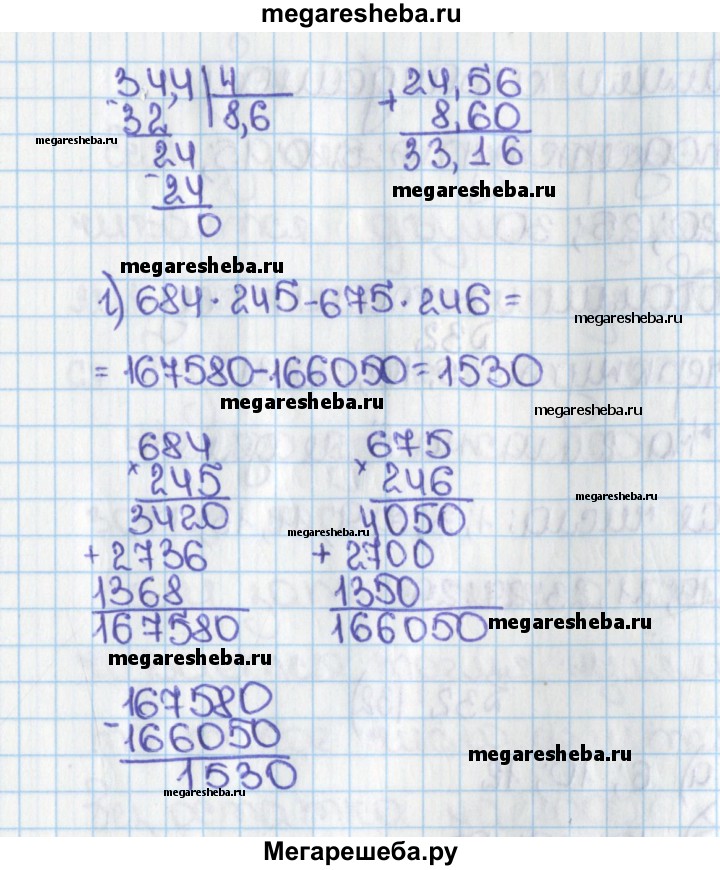 megaresheba.ru
34,4 | 4
- 32 8,6
megaresheba.ru
24
- 24
0
24,56
+ 8,60
33,16
megaresheba.ru
megaresheba.ru
г) 684 · 245 - 675 · 246 =
megaresheba.ru
= 167580 - 166050 = 1530
megaresheba.ru
megaresheba.ru
684
× 245
3420
+ 2736
1368
167580
675
× 246
4050
+ 2700
1350
166050
megaresheba.ru
megaresheba.ru
megaresheba.ru
megaresheba.ru
167580
- 166050
1530
megaresheba.ru
megaresheba.ru
Мегарешеба.ру